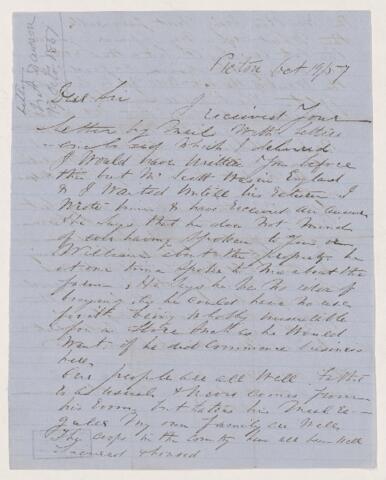 Pictou Oct 19/57
Dear Sir
I received Your
Letter by Mail With letters
enclosed which I delivered
I Would have Written You before
this but Mr Scott Was in England
& I Waited Untill his Return I
Wrote him & have Received an answer
He Says that he dos Not Mind
of ever having Spoken to you or
William about the property he
at one time Spoke to Me about the
farm, He Says he has No idea of
buying it, he could have no use
for it being Wholly unsuitable
for a Store Such as he Would
Want if he did Commence business
here
Our people are all Well Father
is as usual & Never Comes From
his Room but takes his Meals Re-
gular My own Family are Well
The crops in the County have all been Well
Secured & housed